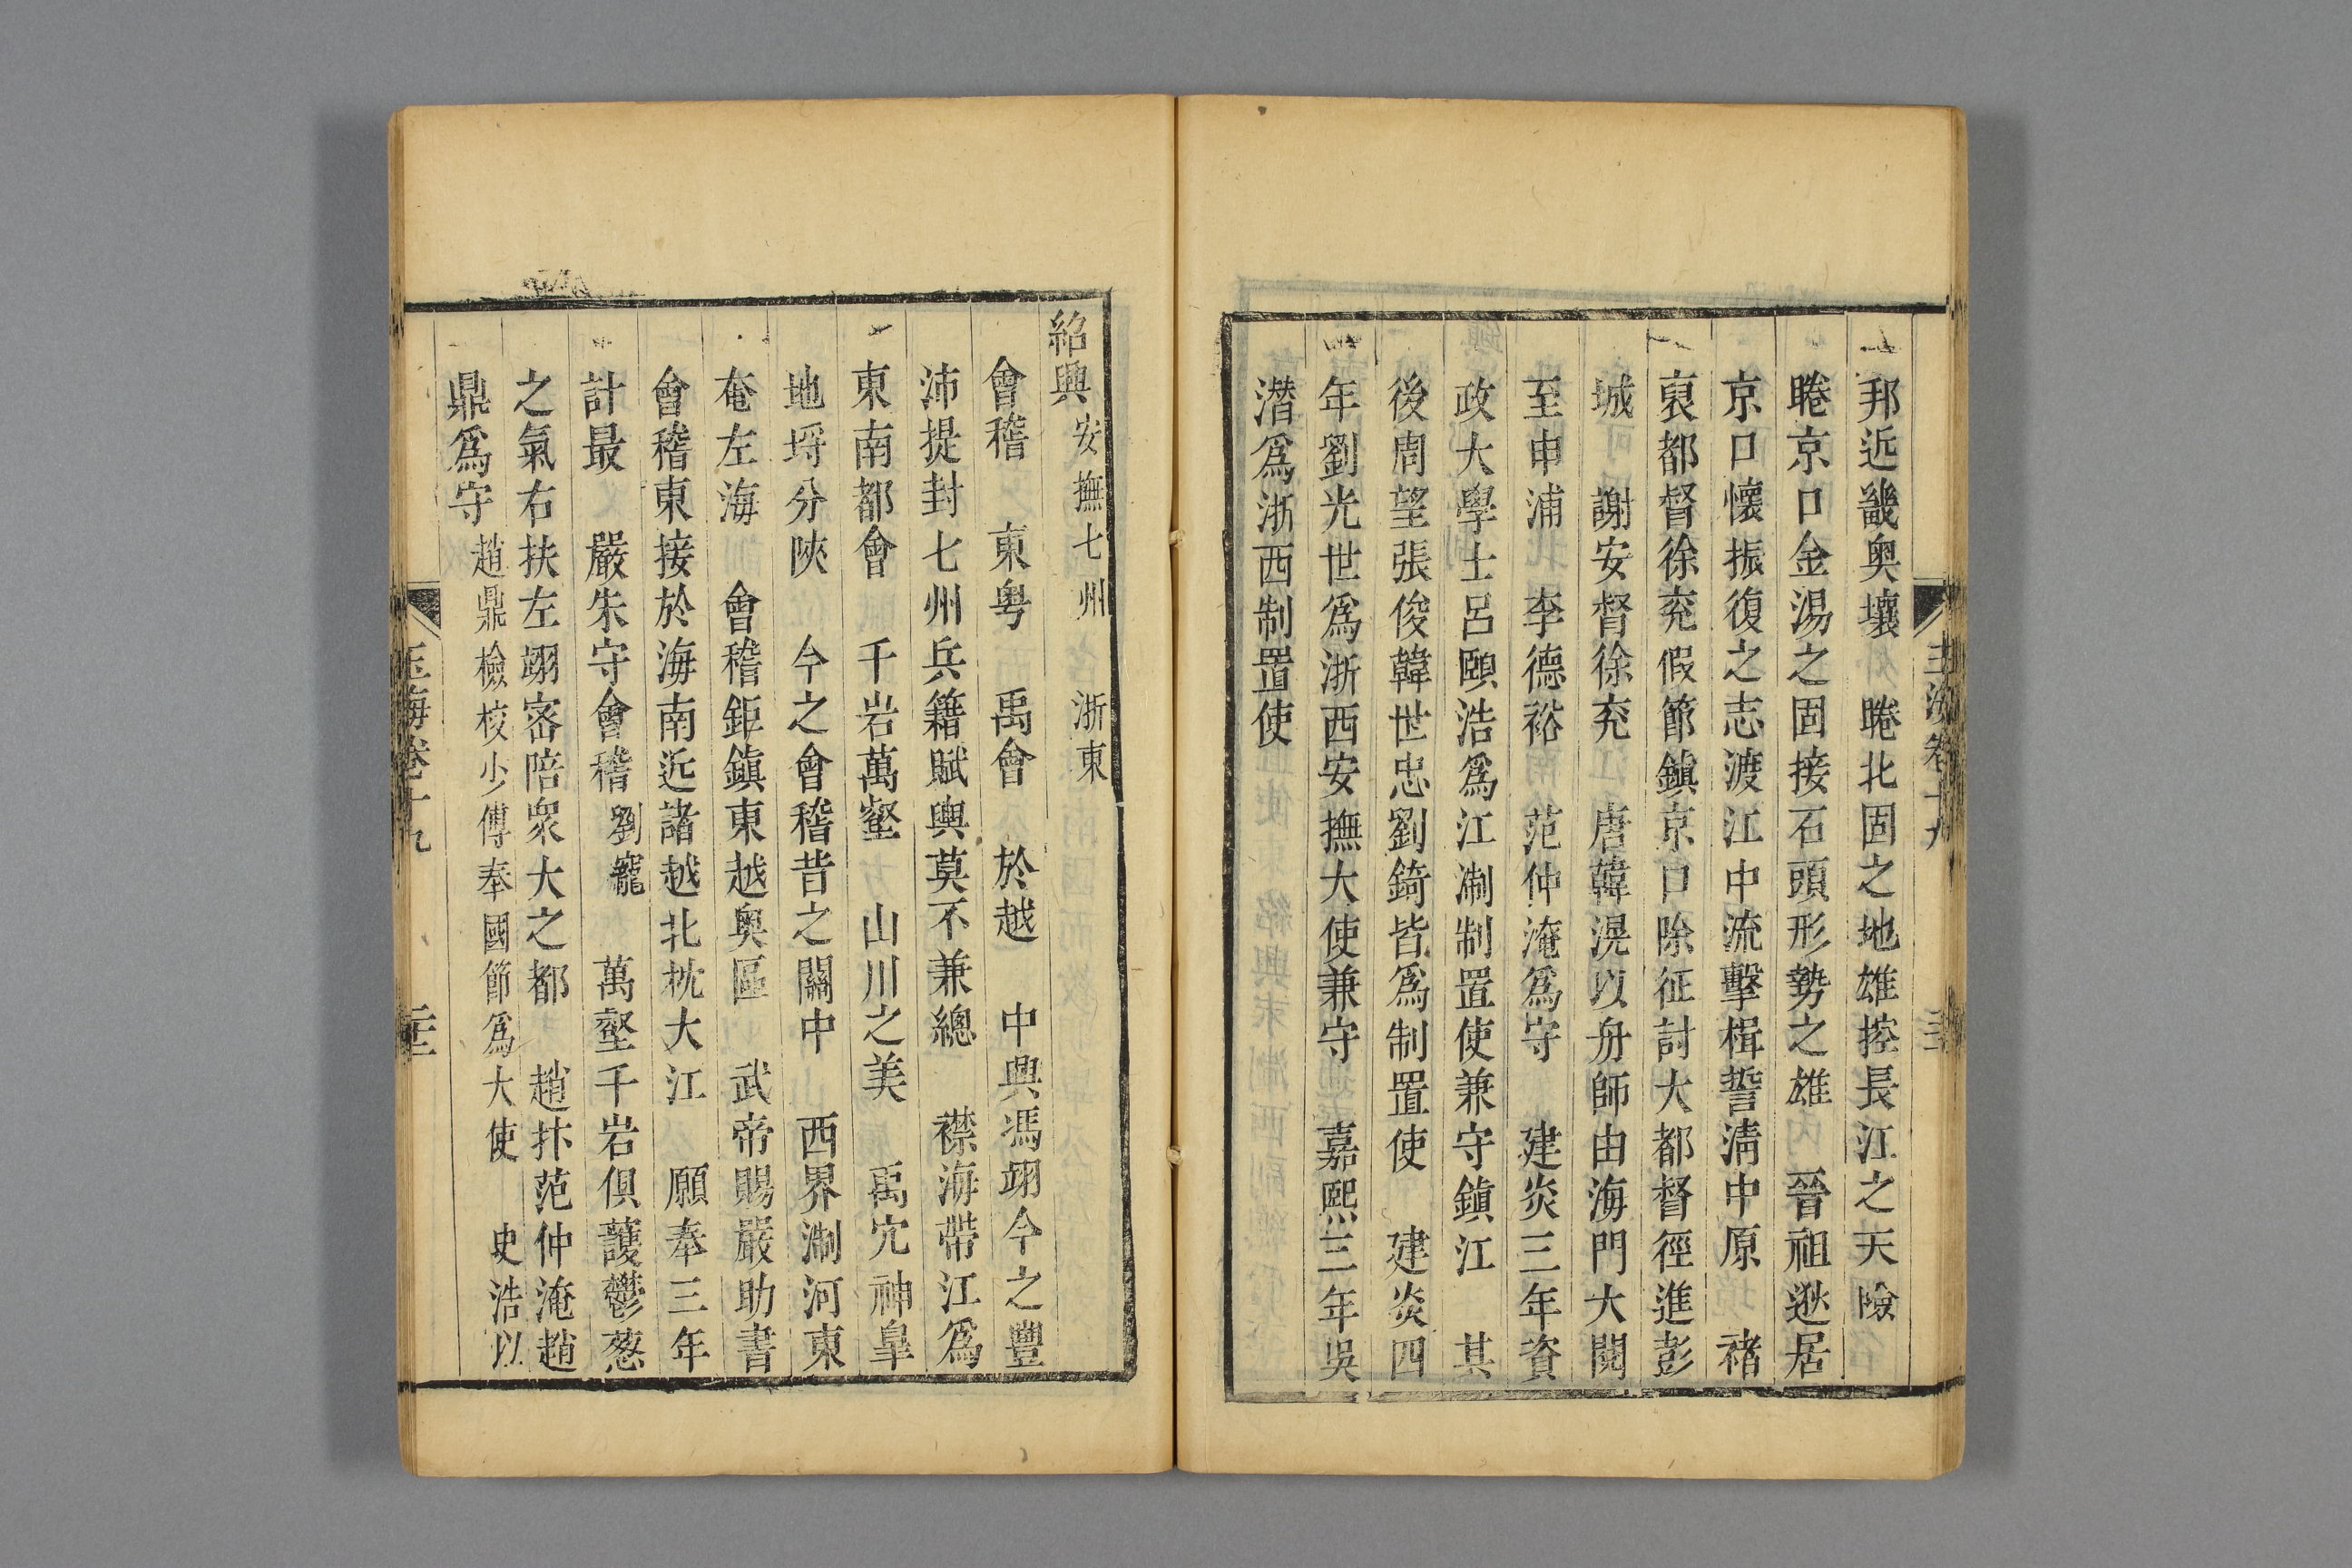 邦近畿奥壤　睠北固之地雄控長江之天險
睠京口金湯之固接石頭形勢之雄　晉祖逖居
京口懷振復之志渡江中流擊楫誓淸中原　褚
裒都督徐兖假節鎮京口除征討大都督徑進彭
城　謝安督徐兖　唐韓滉以舟師由海門大閱
至申浦　李德裕　范仲淹爲守　建炎三年資
政大學士呂頤浩爲江淛制置使兼守鎮江　其
後周望張俊韓世忠劉錡皆爲制置使　建炎四
年劉光世爲浙西安撫大使兼守　嘉熙三年吳
潛爲浙西制置使
玉海卷十九
紹興安撫七州　浙東
會稽　東粤　禹會　於越　中興馮翊今之豐
沛提封七州兵籍賦輿莫不兼總　襟海帶江爲
東南都會　千岩萬壑　山川之美　禹宂神臯
地埒分陝　今之會稽昔之關中　西界淛河東
奄左海　會稽鉅鎮東越奥區　武帝賜嚴助書
會稽東接於海南近諸越北枕大江　願奉三年
計最　嚴朱守會稽劉寵　萬壑千岩俱護鬱葱
之氣右扶左翊密陪衆大之都　趙抃范仲淹趙
鼎爲守趙鼎檢校少傅奉國節爲大使　史浩以
玉海卷十九